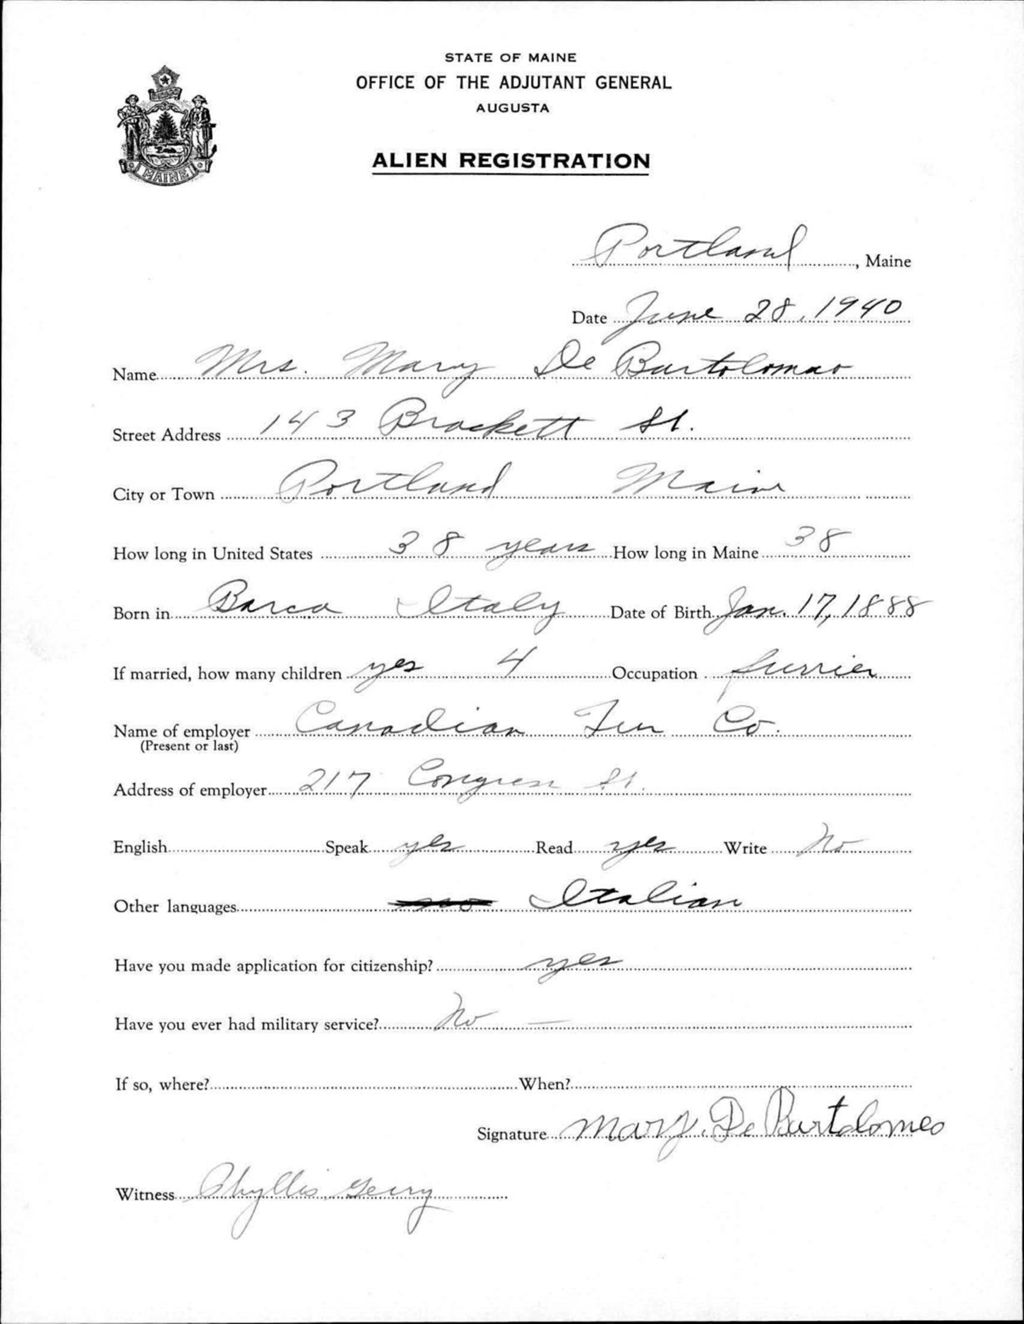 STATE OF MAINE
OFFICE OF THE ADJUTANT GENERAL
AUGUSTA
ALIEN REGISTRATION
MAINE
Portland, Maine
Date June 28, 1940
Name Mrs. Mary De Bartolomao
Street Address 143 Brackett St.
City or Town Portland Maine
How long in United States 38 years How long in Maine 38
Born in Barca Italy Date of Birth Jan. 17, 1888
If married, how many children yes 4 Occupation furrier
Name of employer Canadian Fur Co.
(Present or last)
Address of employer 217 Congress St.
English Speak yes Read yes Write No
Other languages Italian
Have you made application for citizenship? yes
Have you ever had military service? No —
If so, where? When?
Signature Mary. De Bartolomeo
Witness Phyllis Gerry